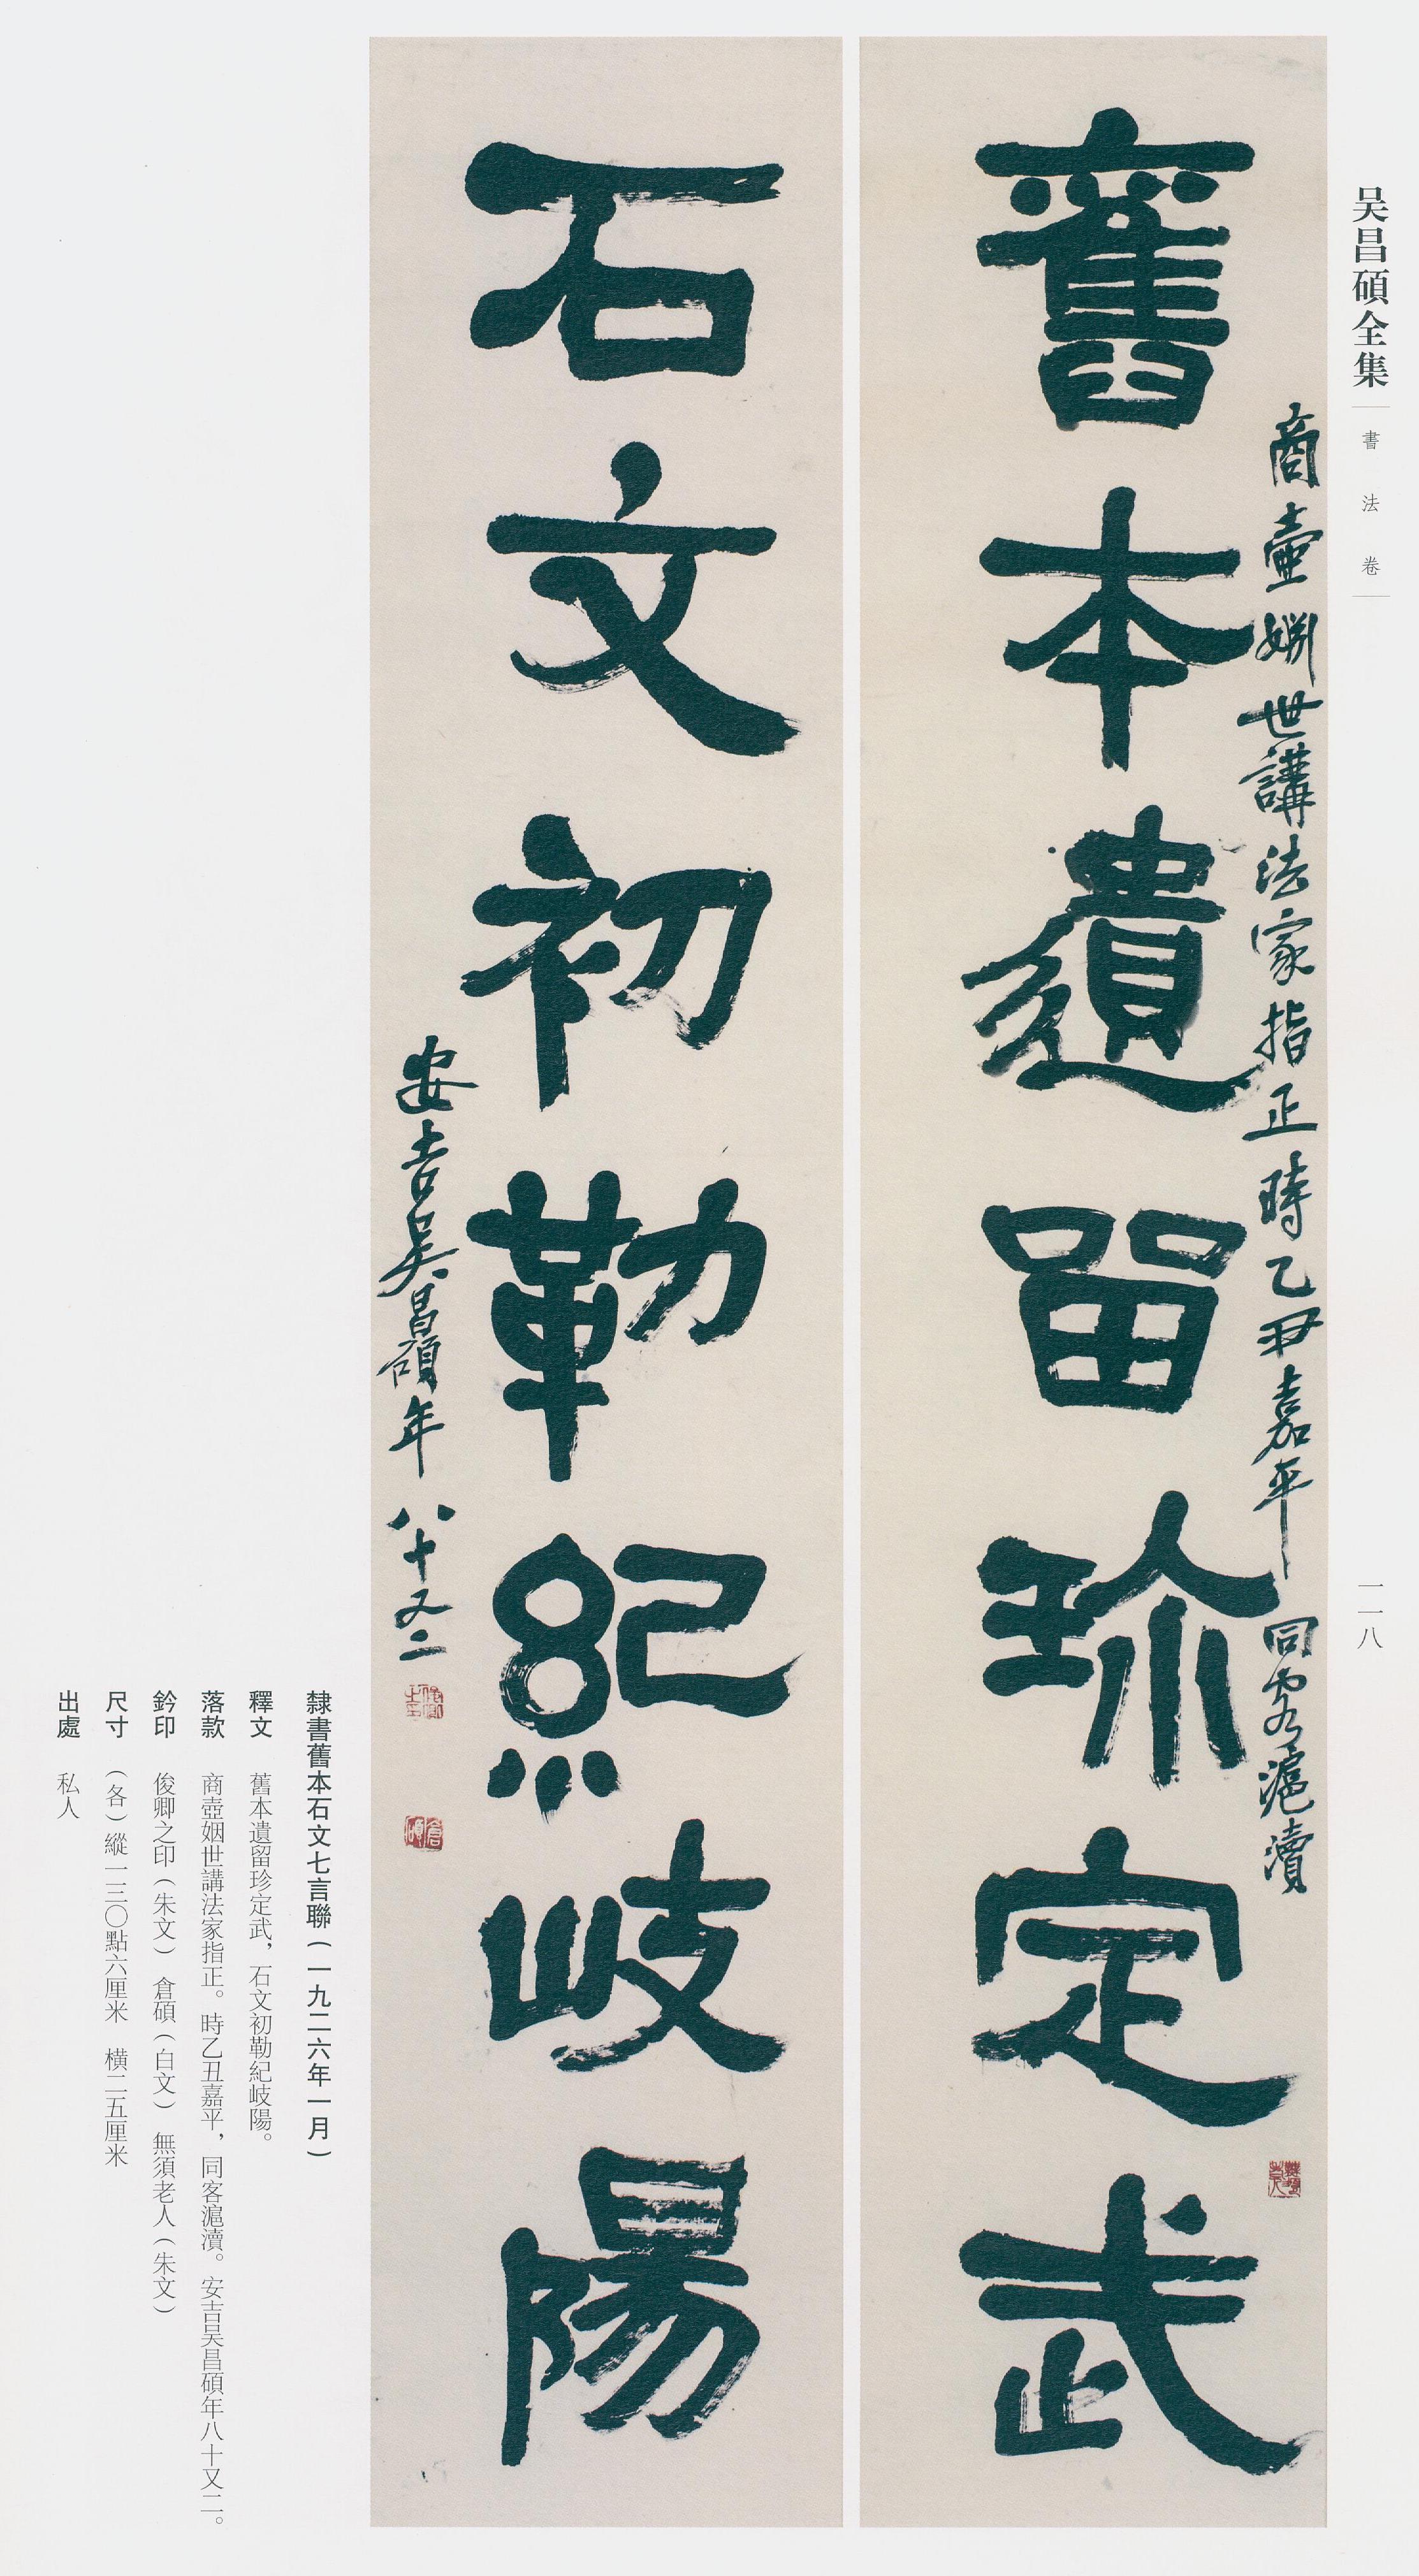 吴昌碩全集
書法卷
一一八
商壺婣世講法家指正時乙丑嘉平同客滬瀆
舊本遺留珍定武
石文初勒紀岐陽
安吉吴昌碩年八十又二
隸書舊本石文七言聯（一九二六年一月）
釋文 舊本遺留珍定武，石文初勒紀岐陽。
落款 商壺姻世講法家指正。時乙丑嘉平，同客滬瀆。安吉吴昌碩年八十又二。
鈐印 俊卿之印（朱文） 倉碩（白文） 無須老人（朱文）
尺寸 （各）縱一三〇點六厘米 橫二五厘米
出處 私人